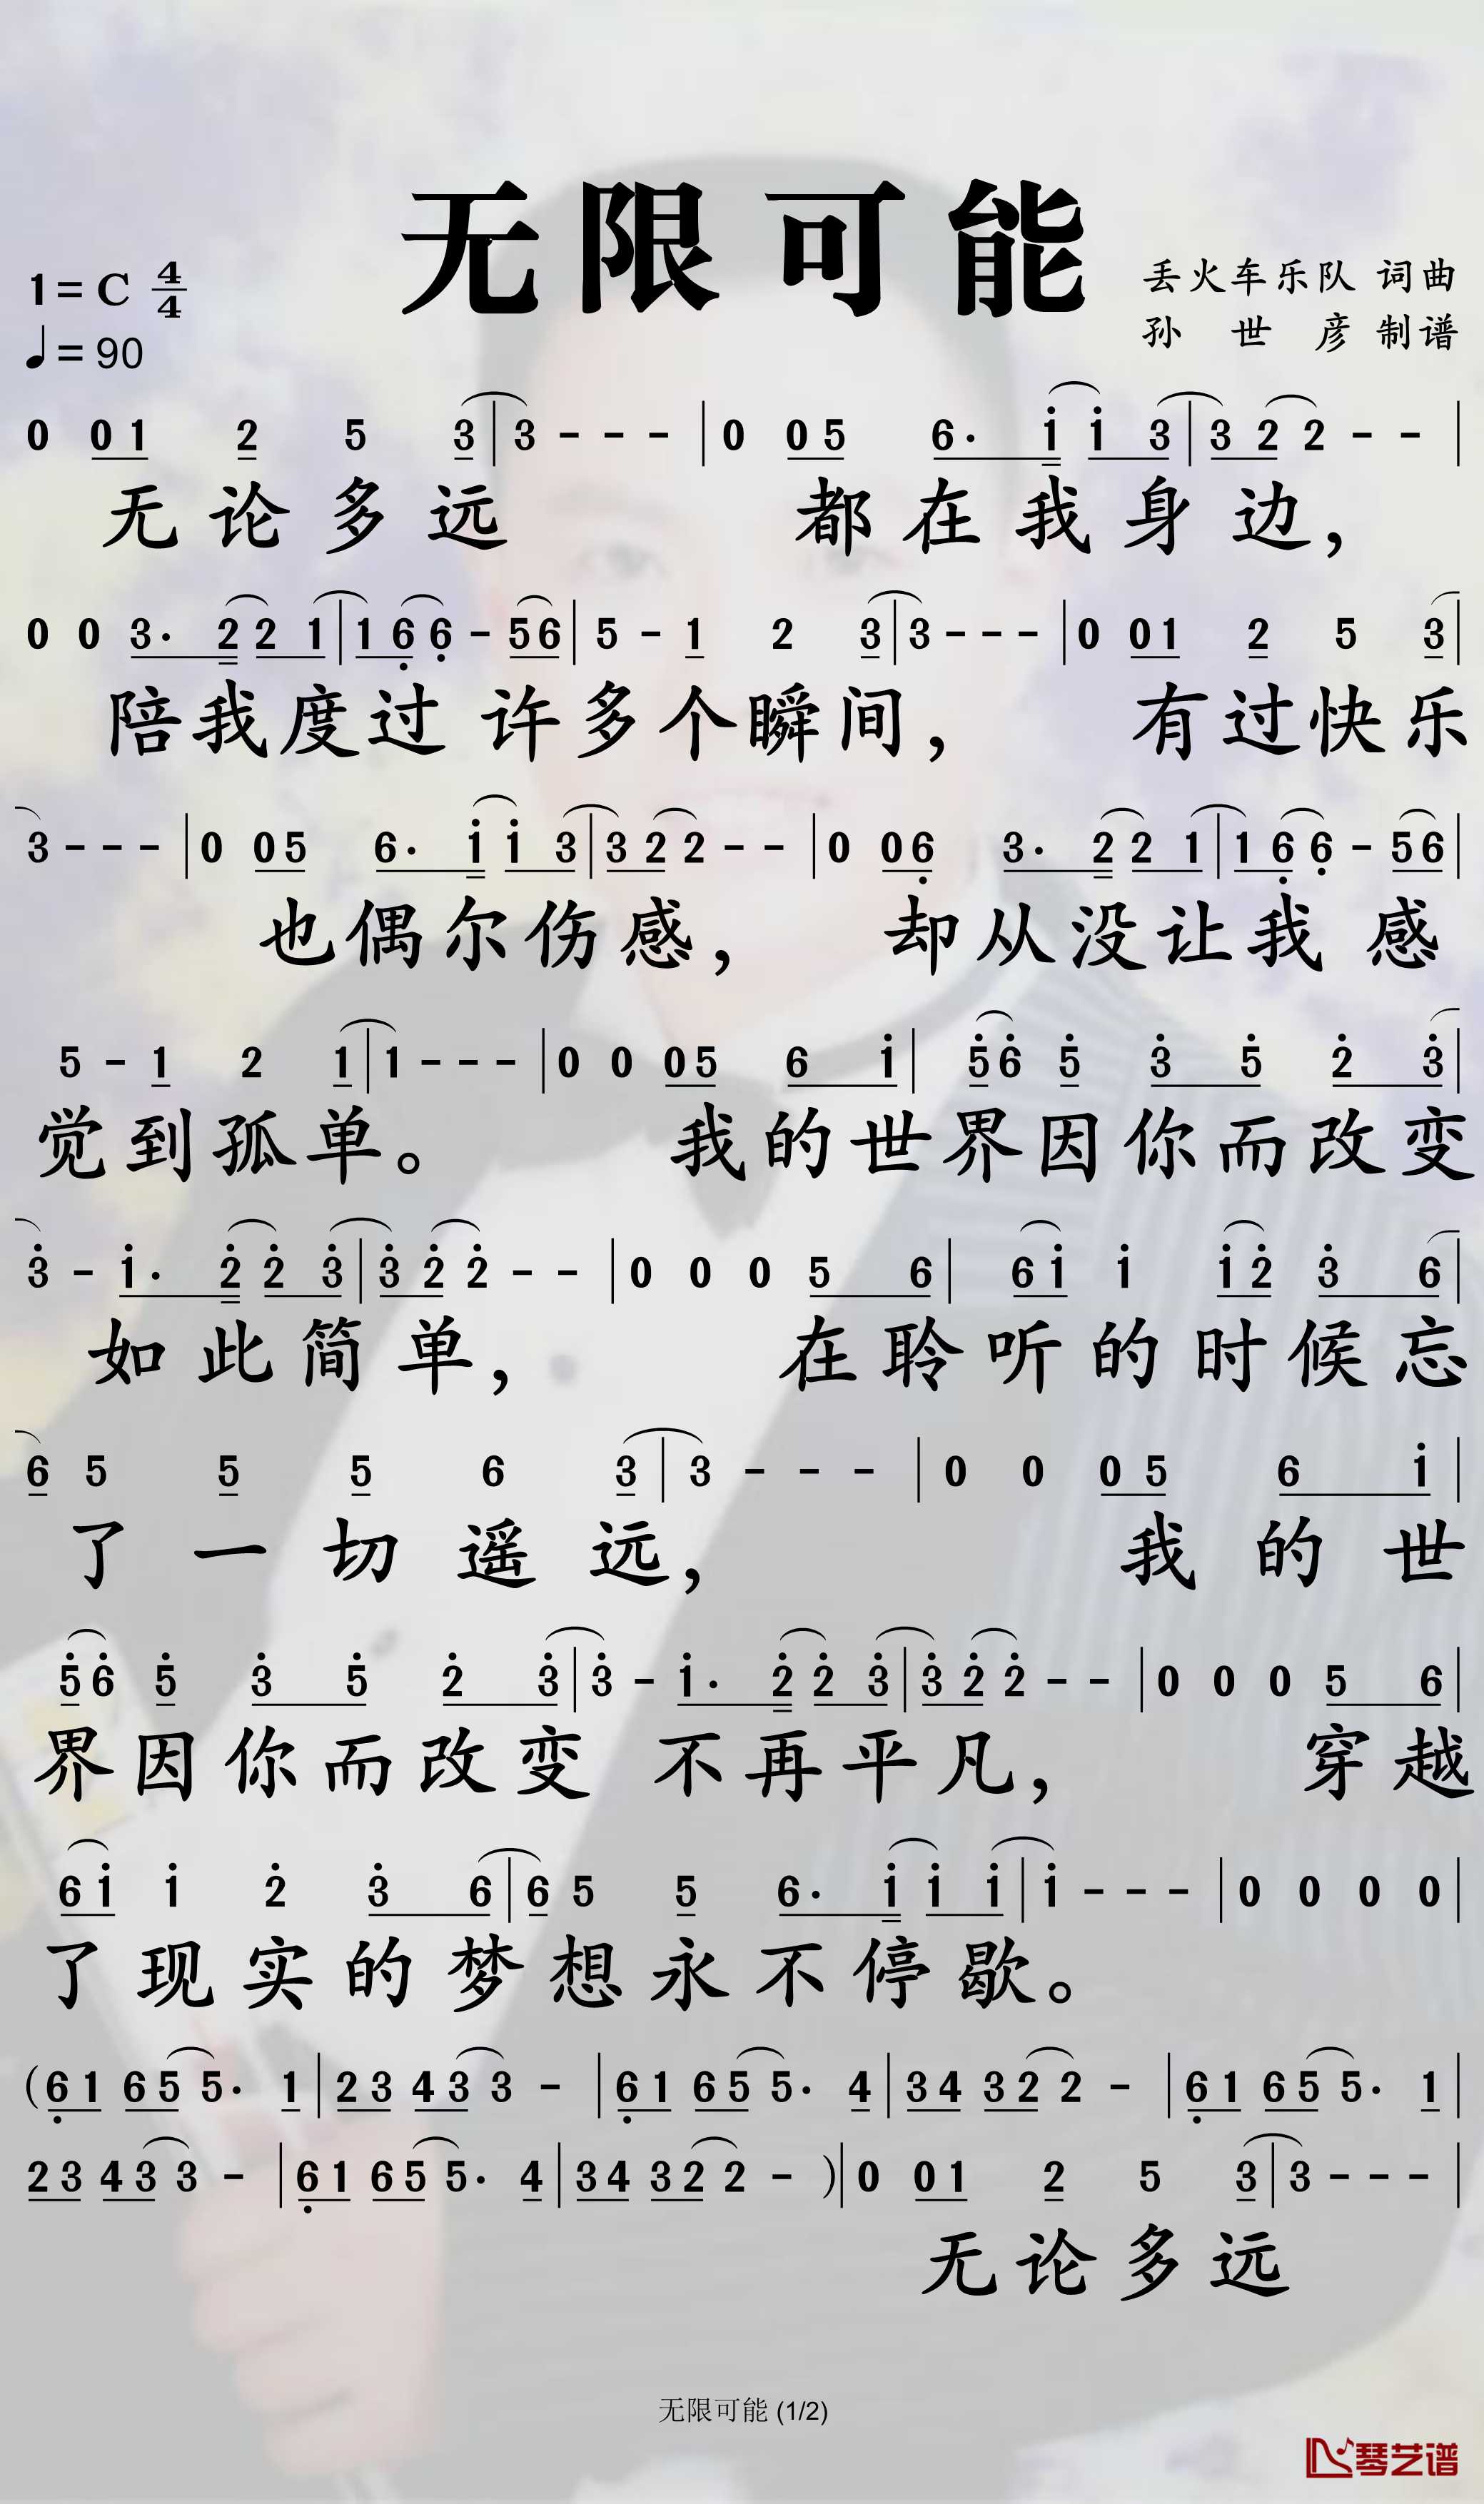 无限可能
1=C 4/4
丢火车乐队 词曲
♩=90
孙 世 彦 制谱
0 0 1 2 5 3 | 3 - - - | 0 0 5 6· i i 3 | 3 2 2 - - |
无论多远 都在我身边，
0 0 3· 2 2 1 | 1 6 6 - 5 6 | 5 - 1 2 3 | 3 - - - | 0 0 1 2 5 3 |
陪我度过 许多个瞬间， 有过快乐
3 - - - | 0 0 5 6· i i 3 | 3 2 2 - - | 0 0 6 3· 2 2 1 | 1 6 6 - 5 6 |
也偶尔伤感， 却从没让我 感
5 - 1 2 1 | 1 - - - | 0 0 0 5 6 i | 5 6 5 3 5 2 3 |
觉到孤单。 我的世界因你而改变
3 - i· 2 2 3 | 3 2 2 - - | 0 0 0 5 6 | 6 i i i 2 3 6 |
如此简单， 在聆听的时候忘
6 5 5 5 6 3 | 3 - - - | 0 0 0 5 6 i |
了一切遥远， 我的世
5 6 5 3 5 2 3 | 3 - i· 2 2 3 | 3 2 2 - - | 0 0 0 5 6 |
界因你而改变 不再平凡， 穿越
6 i i 2 3 6 | 6 5 5 6· i i i | i - - - | 0 0 0 0 |
了现实的梦想永不停歇。
(6 1 6 5 5· 1 | 2 3 4 3 3 - | 6 1 6 5 5· 4 | 3 4 3 2 2 - | 6 1 6 5 5· 1 |
2 3 4 3 3 - | 6 1 6 5 5· 4 | 3 4 3 2 2 - )| 0 0 1 2 5 3 | 3 - - - |
无论多远
无限可能 (1/2)
琴艺谱